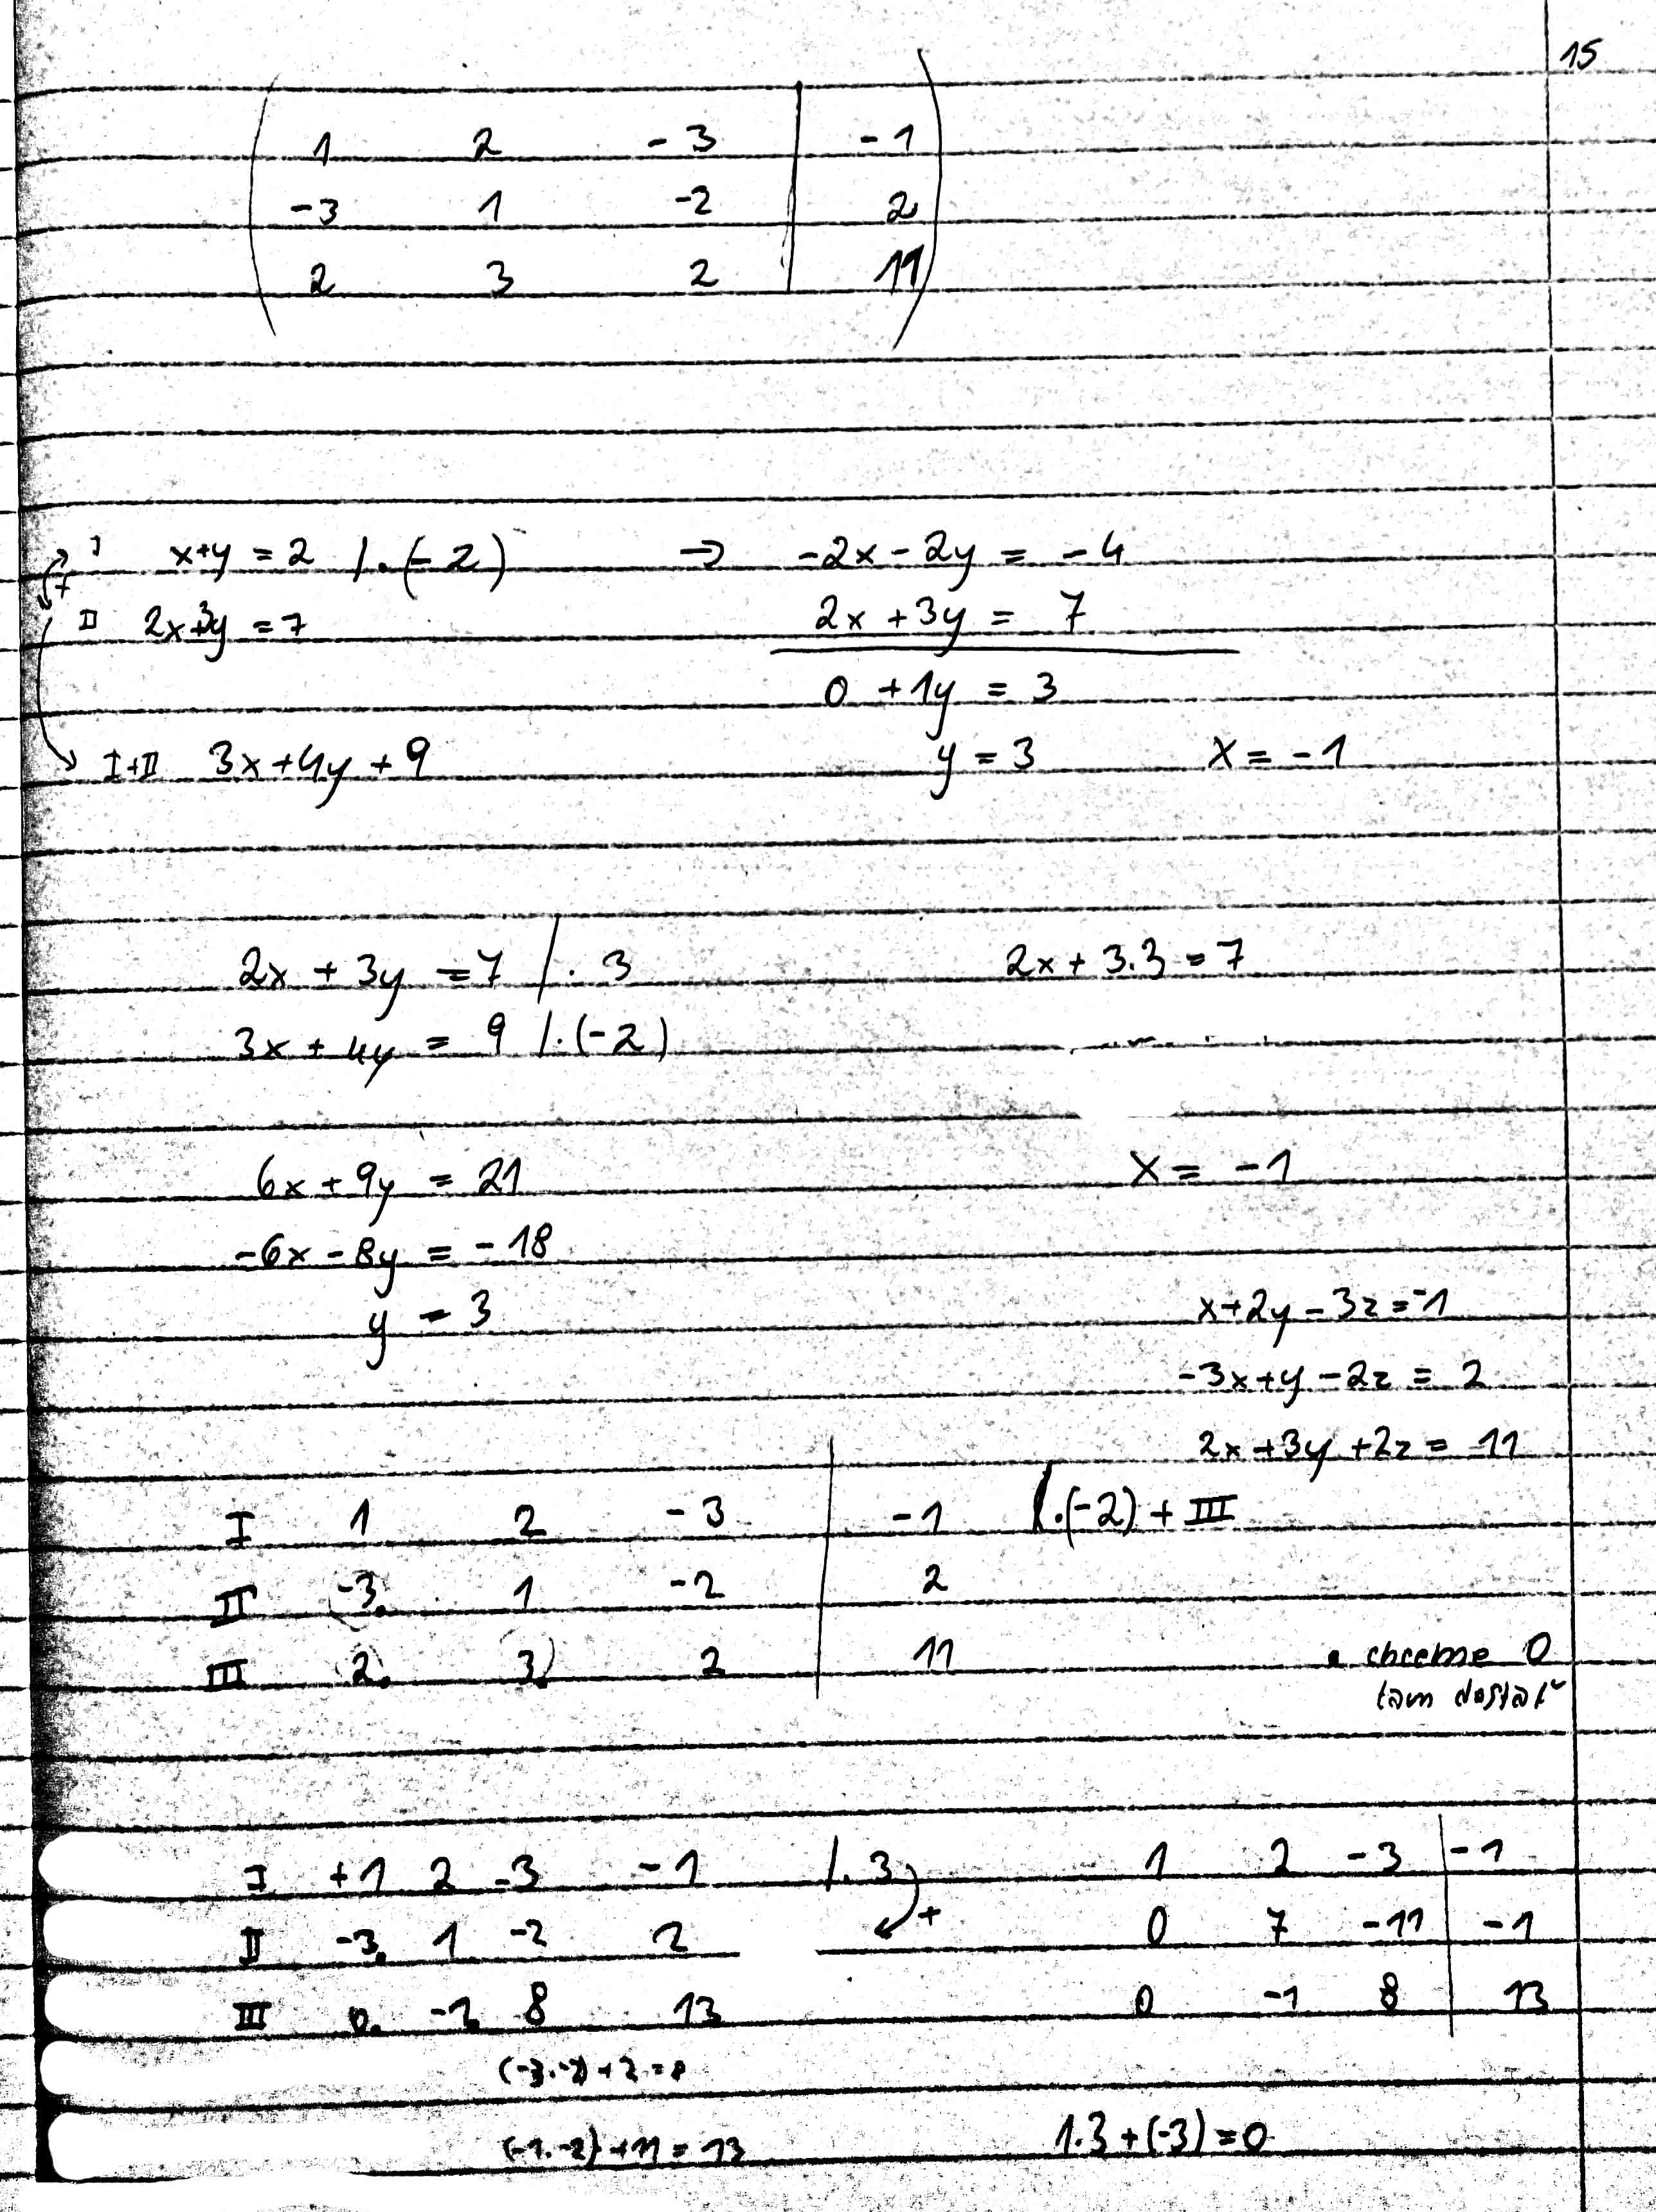 15
1 2 -3 | -1
-3 1 -2 | 2
2 3 2 | 11
I x+y = 2 /.(-2) → -2x - 2y = -4
+
II 2x+3y = 7 2x + 3y = 7
0 + 1y = 3
I+II 3x+4y + 9 y = 3 x = -1
2x + 3y = 7 /. 3 2x + 3.3 = 7
3x + 4y = 9 /.(-2)
6x + 9y = 21 x = -1
-6x - 8y = -18
y = 3 x+2y-3z=-1
-3x+y-2z = 2
2x+3y+2z = 11
I 1 2 -3 | -1 /.(-2) + III
II -3. 1 -2 | 2
III 2. 3. 2 | 11 • chceme 0
tam dostať
I +1 2 -3 -1 /. 3 1 2 -3 | -1
II -3. 1 -2 2 + 0 7 -11 | -1
III 0. -1. 8 13 0 -1 8 | 13
(-3.-2)+2=8
(-1.-2)+11=13 1.3+(-3)=0